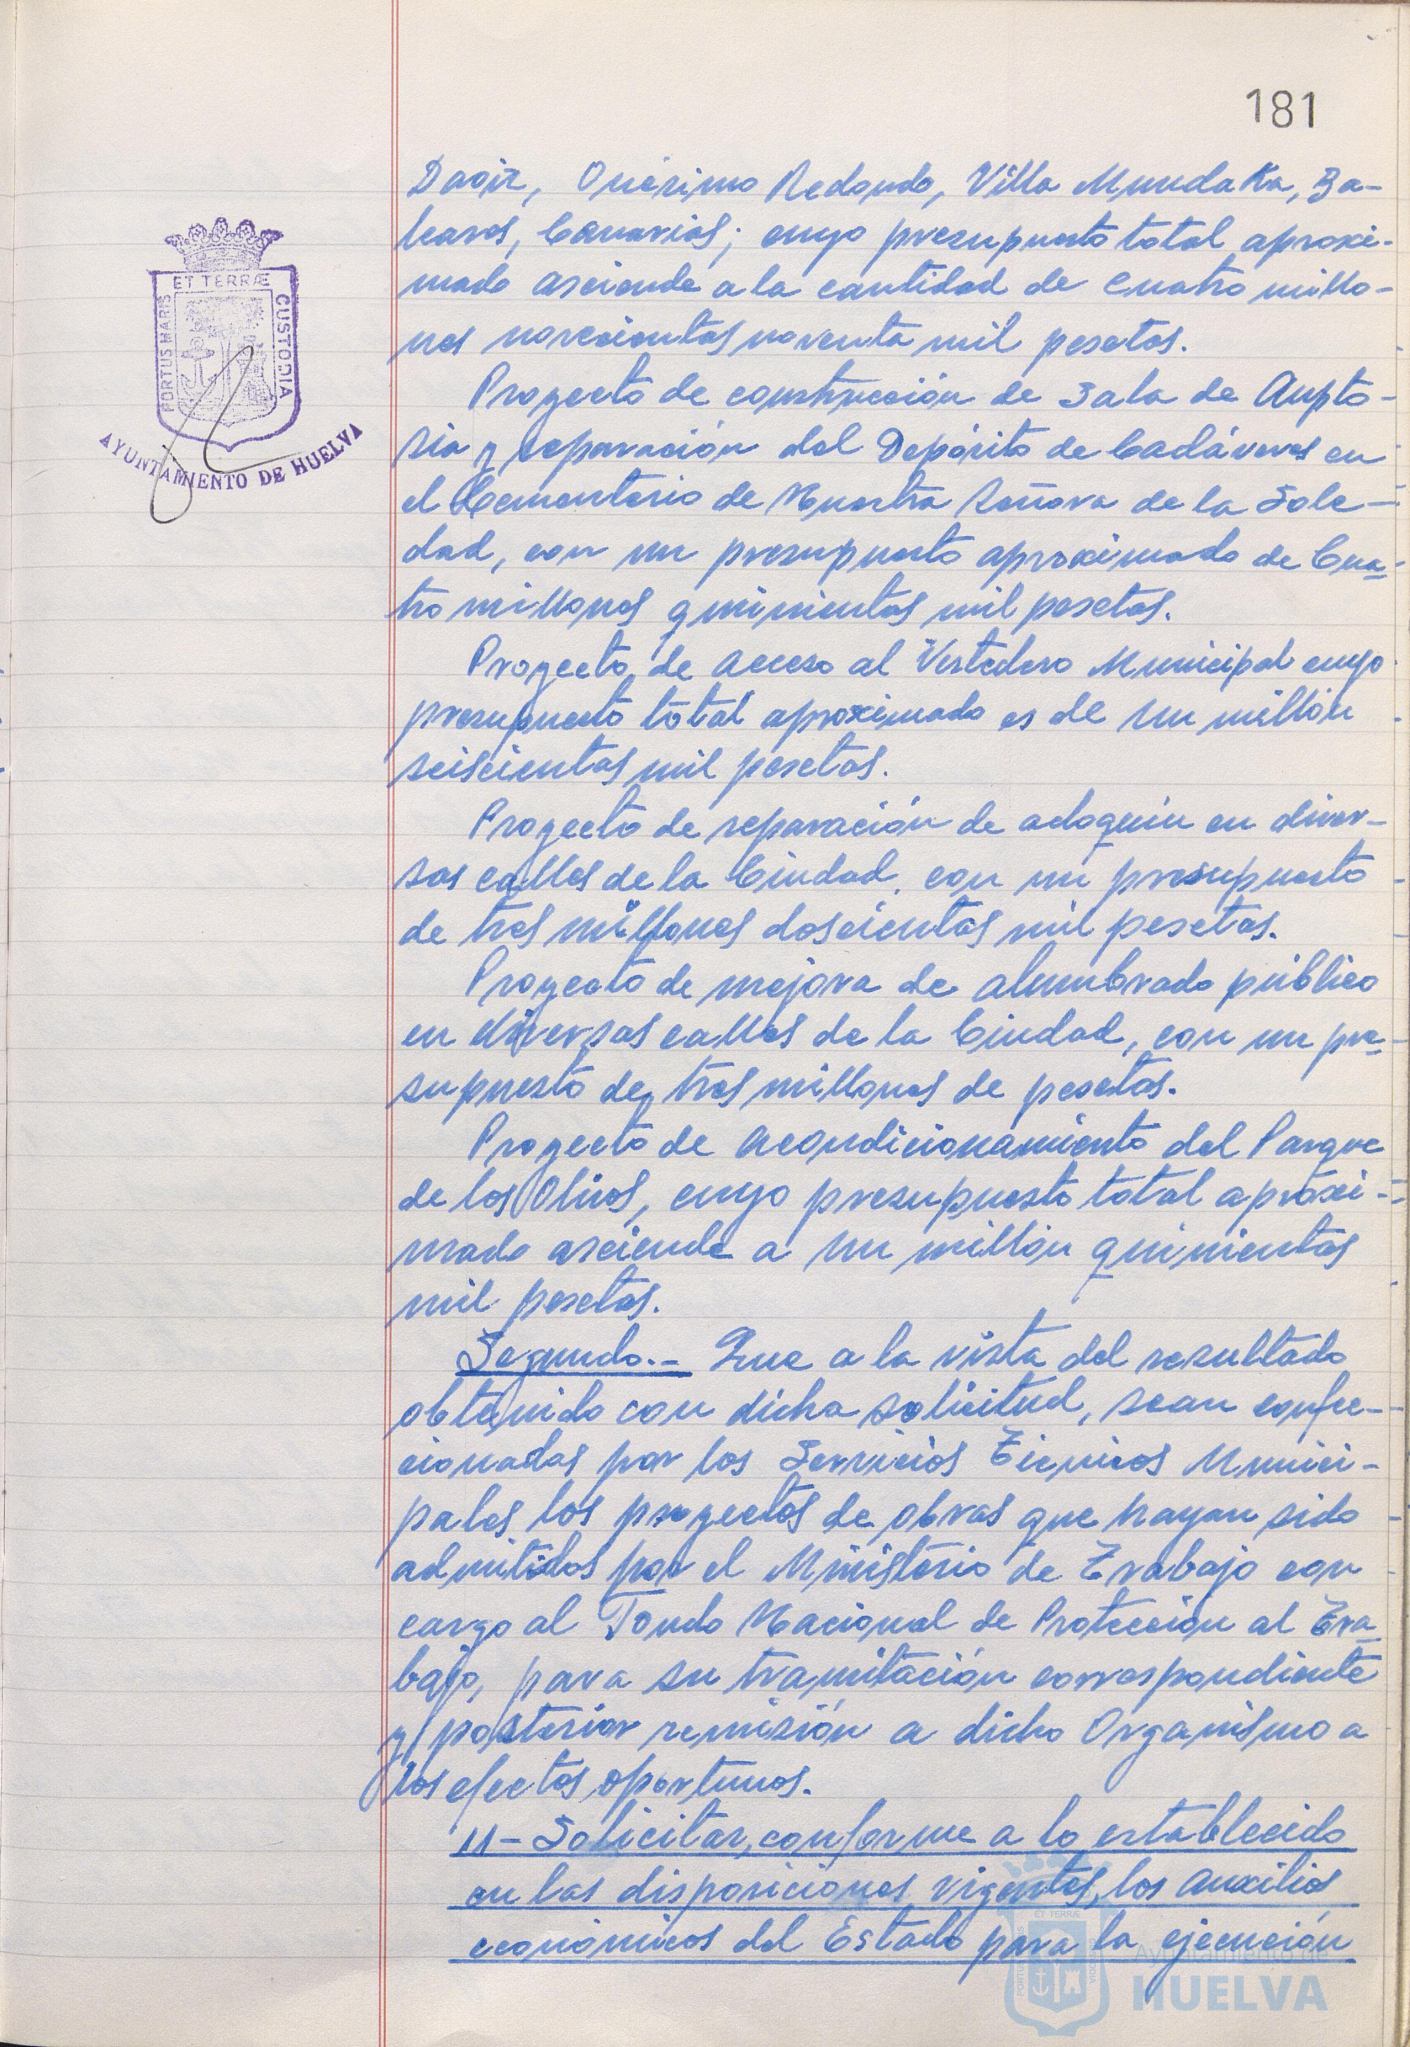 181
Daoiz, Onésimo Redondo, Villa Mundaka, Ba-
leares, Canarias; cuyo presupuesto total aproxi-
mado asciende a la cantidad de cuatro millo-
nes novecientas noventa mil pesetas.
Proyecto de construcción de Sala de Aupto-
sia y reparación del Depósito de Cadáveres en
el Cementerio de Nuestra Señora de la Sole-
dad, con un presupuesto aproximado de Cua-
tro millones quinientas mil pesetas.
Proyecto de acceso al Vertedero Municipal cuyo
presupuesto total aproximado es de un millón
seiscientas mil pesetas.
Proyecto de reparación de adoquin en diver-
sas calles de la Ciudad, con un presupuesto
de tres millones doscientas mil pesetas.
Proyecto de mejora de alumbrado público
en diversas calles de la Ciudad, con un pre-
supuesto de tres millones de pesetas.
Proyecto de acondicionamiento del Parque
de los Olivos, cuyo presupuesto total aproxi-
mado asciende a un millón quinientas
mil pesetas.
Segundo.- Que a la vista del resultado
obtenido con dicha solicitud, sean confec-
cionadas por los Servicios Técnicos Munici-
pales los proyectos de obras que hayan sido
admitidos por el Ministerio de Trabajo con
cargo al Fondo Nacional de Protección al Tra-
bajo, para su tramitación correspondiente
y posterior remisión a dicho Organismo a
los efectos oportunos.
11- Solicitar, conforme a lo establecido
en las disposiciones vigentes, los auxilios
económicos del Estado para la ejecución
PORTUS MARIS ET TERRÆ CUSTODIA
AYUNTAMIENTO DE HUELVA
Ayuntamiento de
HUELVA